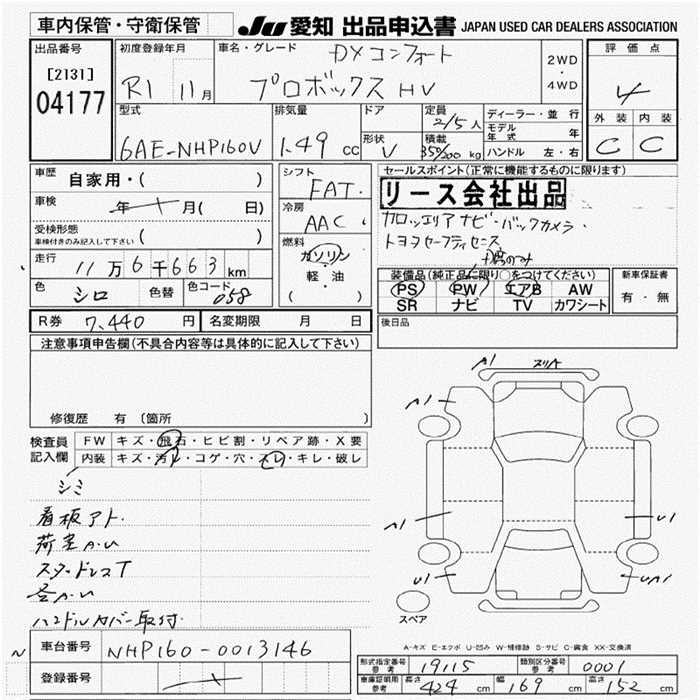 車内保管・守衛保管
JU 愛知 出品申込書 JAPAN USED CAR DEALERS ASSOCIATION
出品番号
[2131]
04177
初度登録年月
R1 11月
車名・グレード
DXコンフォート
プロボックス HV
2WD
・
4WD
評価点
4
外装 内装
C C
型式
6AE-NHP160V
排気量
1.49 cc
ドア
形状
V
定員
2/5人
積載
350/200 kg
ディーラー・並行
モデル年式 年
ハンドル 左・右
車歴
自家用・( )
車検
年 月( 日)
受検形態
車検付きのみ記入して下さい ( )
走行
11万6千663km
色 シロ 色替 色コード 058
シフト
FAT
冷房
AAC
燃料
ガソリン
・
軽・油
( )
セールスポイント(正常に機能するものに限ります)
リース会社出品
カロッエリアナビ・バックカメラ・
トヨタセーフティセンス
装備品(純正品に限り○をつけてください)
PS PW エアB AW
SR ナビ TV カワシート
新車保証書
有・無
R券 7,440 円 名変期限 月 日
後日品
注意事項申告欄(不具合内容等は具体的に記入して下さい)
修復歴 有 〔箇所 〕
検査員記入欄
FW キズ・飛石・ヒビ割・リペア跡・X要
内装 キズ・汚れ・コゲ・穴・スレ・キレ・破レ
シミ
看板アト.
荷室A.U
スタッドレスT
A.U
ハンドルカバー取付.
A1 スリA
A1
A1
U1
U1
UA1
スペア
A-キズ E-エクボ U-凹み W-補修跡 S-サビ C-腐食 XX-交換済
車台番号 NHP160-0013146
登録番号
形式指定番号 参考 19115 類別区分番号 参考 0001
車庫証明用 参考 長さ 424 cm 幅 169 cm 高さ 152 cm